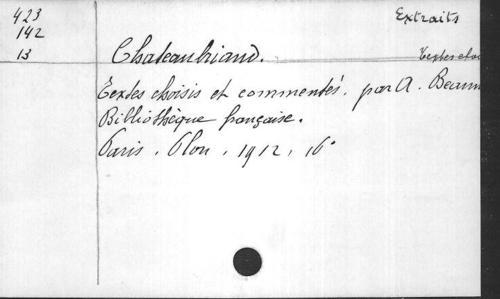 423
142
13
Extraits
Chateaubriand.
Textes choi
Textes choisis et commentés. par A. Beaun
Bibliothèque française.
Paris. Plon. 1912, 16°